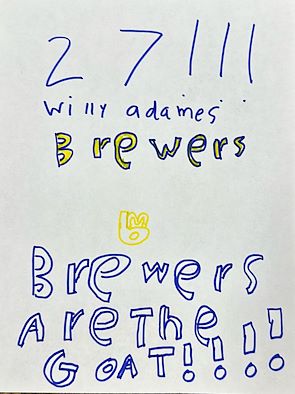 27!!!
willy adames
Brewers
Brewers
Are The
GOAT!!!!